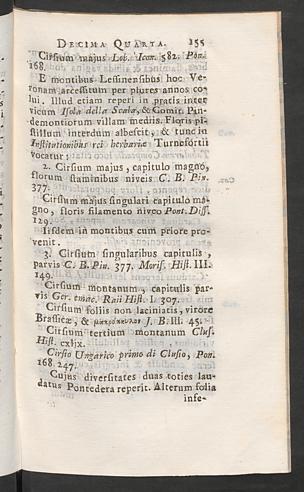 DECIMA QUARTA. 155
Cirsium majus Lob. Icon. 582. Pon.
168.
E montibus Lessinensibus hoc Ve-
ronam arcessitum per plures annos co-
lui. Illud etiam reperi in pratis inter
vicum Isola della Scala, & Comit. Pin-
demontiorum villam mediis. Floris pi-
stillum interdum albescit, & tunc in
Institutionibus rei herbariæ Turnefortii
vocatur:
2. Cirsium majus, capitulo magno,
florum staminibus niveis C. B. Pin.
377.
Cirsium majus singulari capitulo ma-
gno, floris filamento niveo Pont. Diss.
129.
Iisdem in montibus cum priore pro-
venit.
3. Cirsium singularibus capitulis,
parvis C. B. Pin. 377. Moris. Hist. III.
149.
Cirsium montanum, capitulis par-
vis Ger. emac. Raii Hist. I. 307.
Cirsium foliis non laciniatis, virore
Brassicæ, & J. B. III. 45.
Cirsium tertium montanum Clus.
Hist. cxlix.
Cirsio Ungarico primo di Clusio, Pon.
168. 247.
Cujus diversitates duas toties lau-
datus Pontedera reperit. Alterum folia
infe-